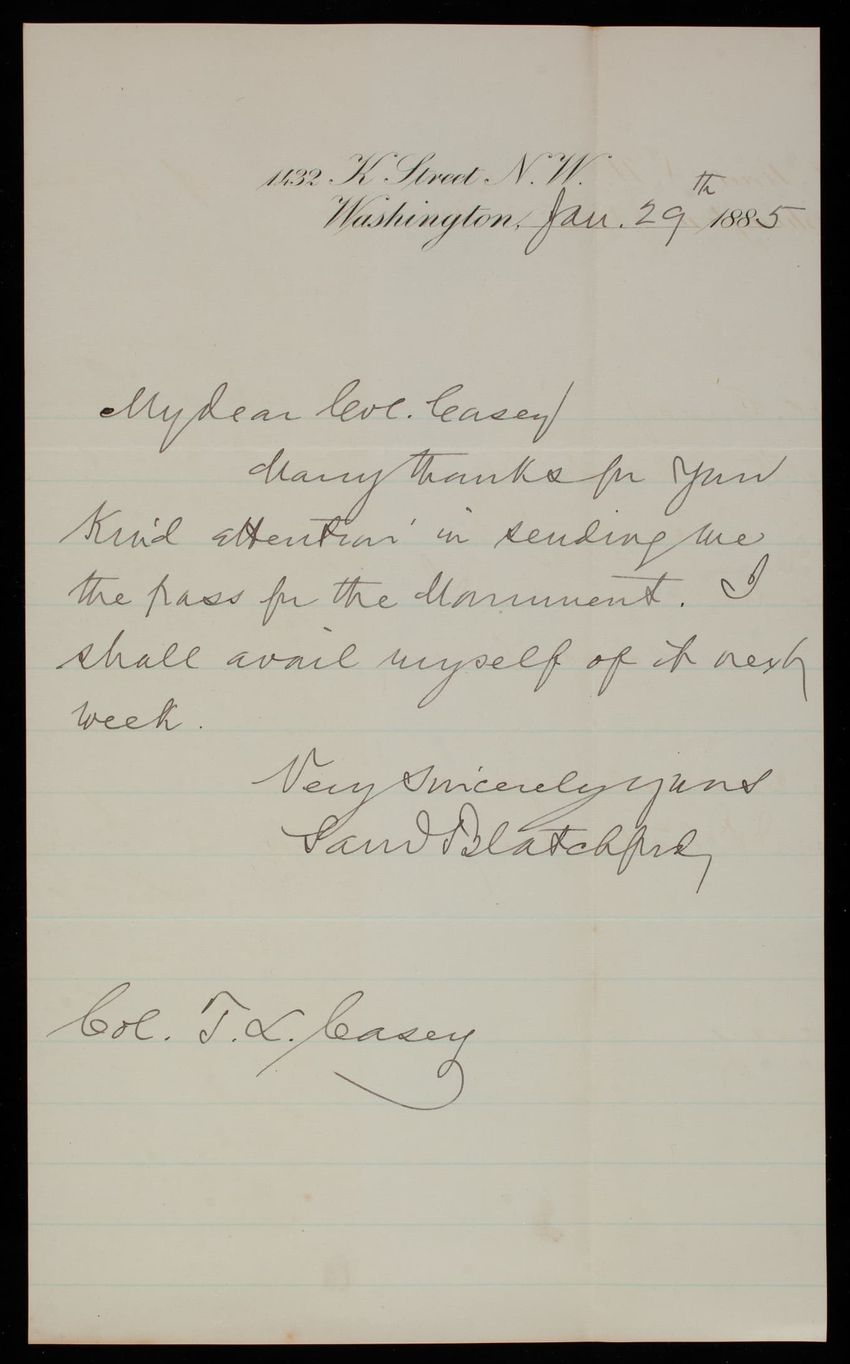 1432 K Street N.W.
Washington, Jan. 29th 1885
My dear Col. Casey
Many thanks for your
kind attention in sending me
the pass for the Monument. I
shall avail myself of it next
week.
Very sincerely yours
Saml Blatchford
Col. T. L. Casey